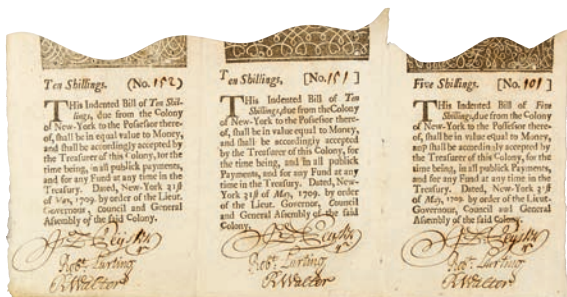 Ten Shillings. (No. 152)
THis Indented Bill of Ten Shil-
lings, due from the Colony
of New-York to the Possessor there-
of, shall be in value equal to Money,
and shall be accordingly accepted by
the Treasurer of this Colony, for the
time being, and in all publick payments,
and for any Fund at any time in the
Treasury. Dated, New-York 31st
of May, 1709. by order of the Lieut.
Governour, Council and General
Assembly of the said Colony.
Robt. Lurting
R Walter
Ten Shillings, [No. 151]
THis Indented Bill of Ten
Shillings, due from the Colony
of New-York to the Possessor there-
of, shall be in value equal to Money,
and shall be accordingly accepted
by the Treasurer of this Colony, for
the time being, and in all publick
Payments, and for any Fund at any
time in the Treasury. Dated, New-
York 31st of May, 1709. by order
of the Lieut. Governour, Council
and General Assembly of the said
Colony.
Robt. Lurting
R Walter
Five Shillings, [No. 101]
THis Indented Bill of Five
Shillings, due from the Colony
of New-York to the Possessor there-
of, shall be in value equal to Money,
and shall be accordingly accepted by
the Treasurer of this Colony, for the
time being, and in all publick
Payments, and for any Fund at any
time in the Treasury. Dated, New-York 31st
of May, 1709. by order of the Lieut.
Governour, Council and General
Assembly of the said Colony.
Robt. Lurting
R Walter